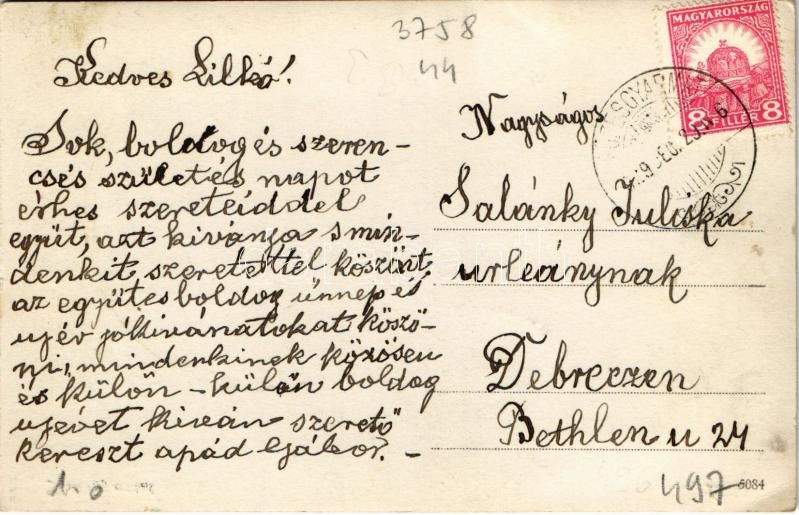 3758
44
Kedves Lilkó!
Sok, boldog és szeren-
csés születés napot
érhes szereteiddel
együt, azt kivánja s min-
denkit szeretettel köszönt,
az együtes boldog ünnep és
ujév jókivánatokat köszö-
ni, mindenkinek közösen
és külön-külön boldog
ujévet kiván szerető
kereszt apád Gábor.-
MAGYARORSZÁG
8 FILLÉR 8
Nagyságos
Salánky Juliska
urleánynak
Debreczen
Bethlen u 24
497
6084